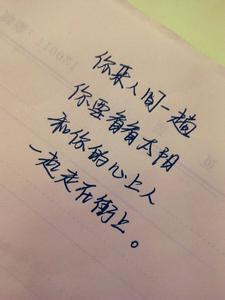 你来人间一趟
你要看看太阳
和你的心上人
一起走在街上。